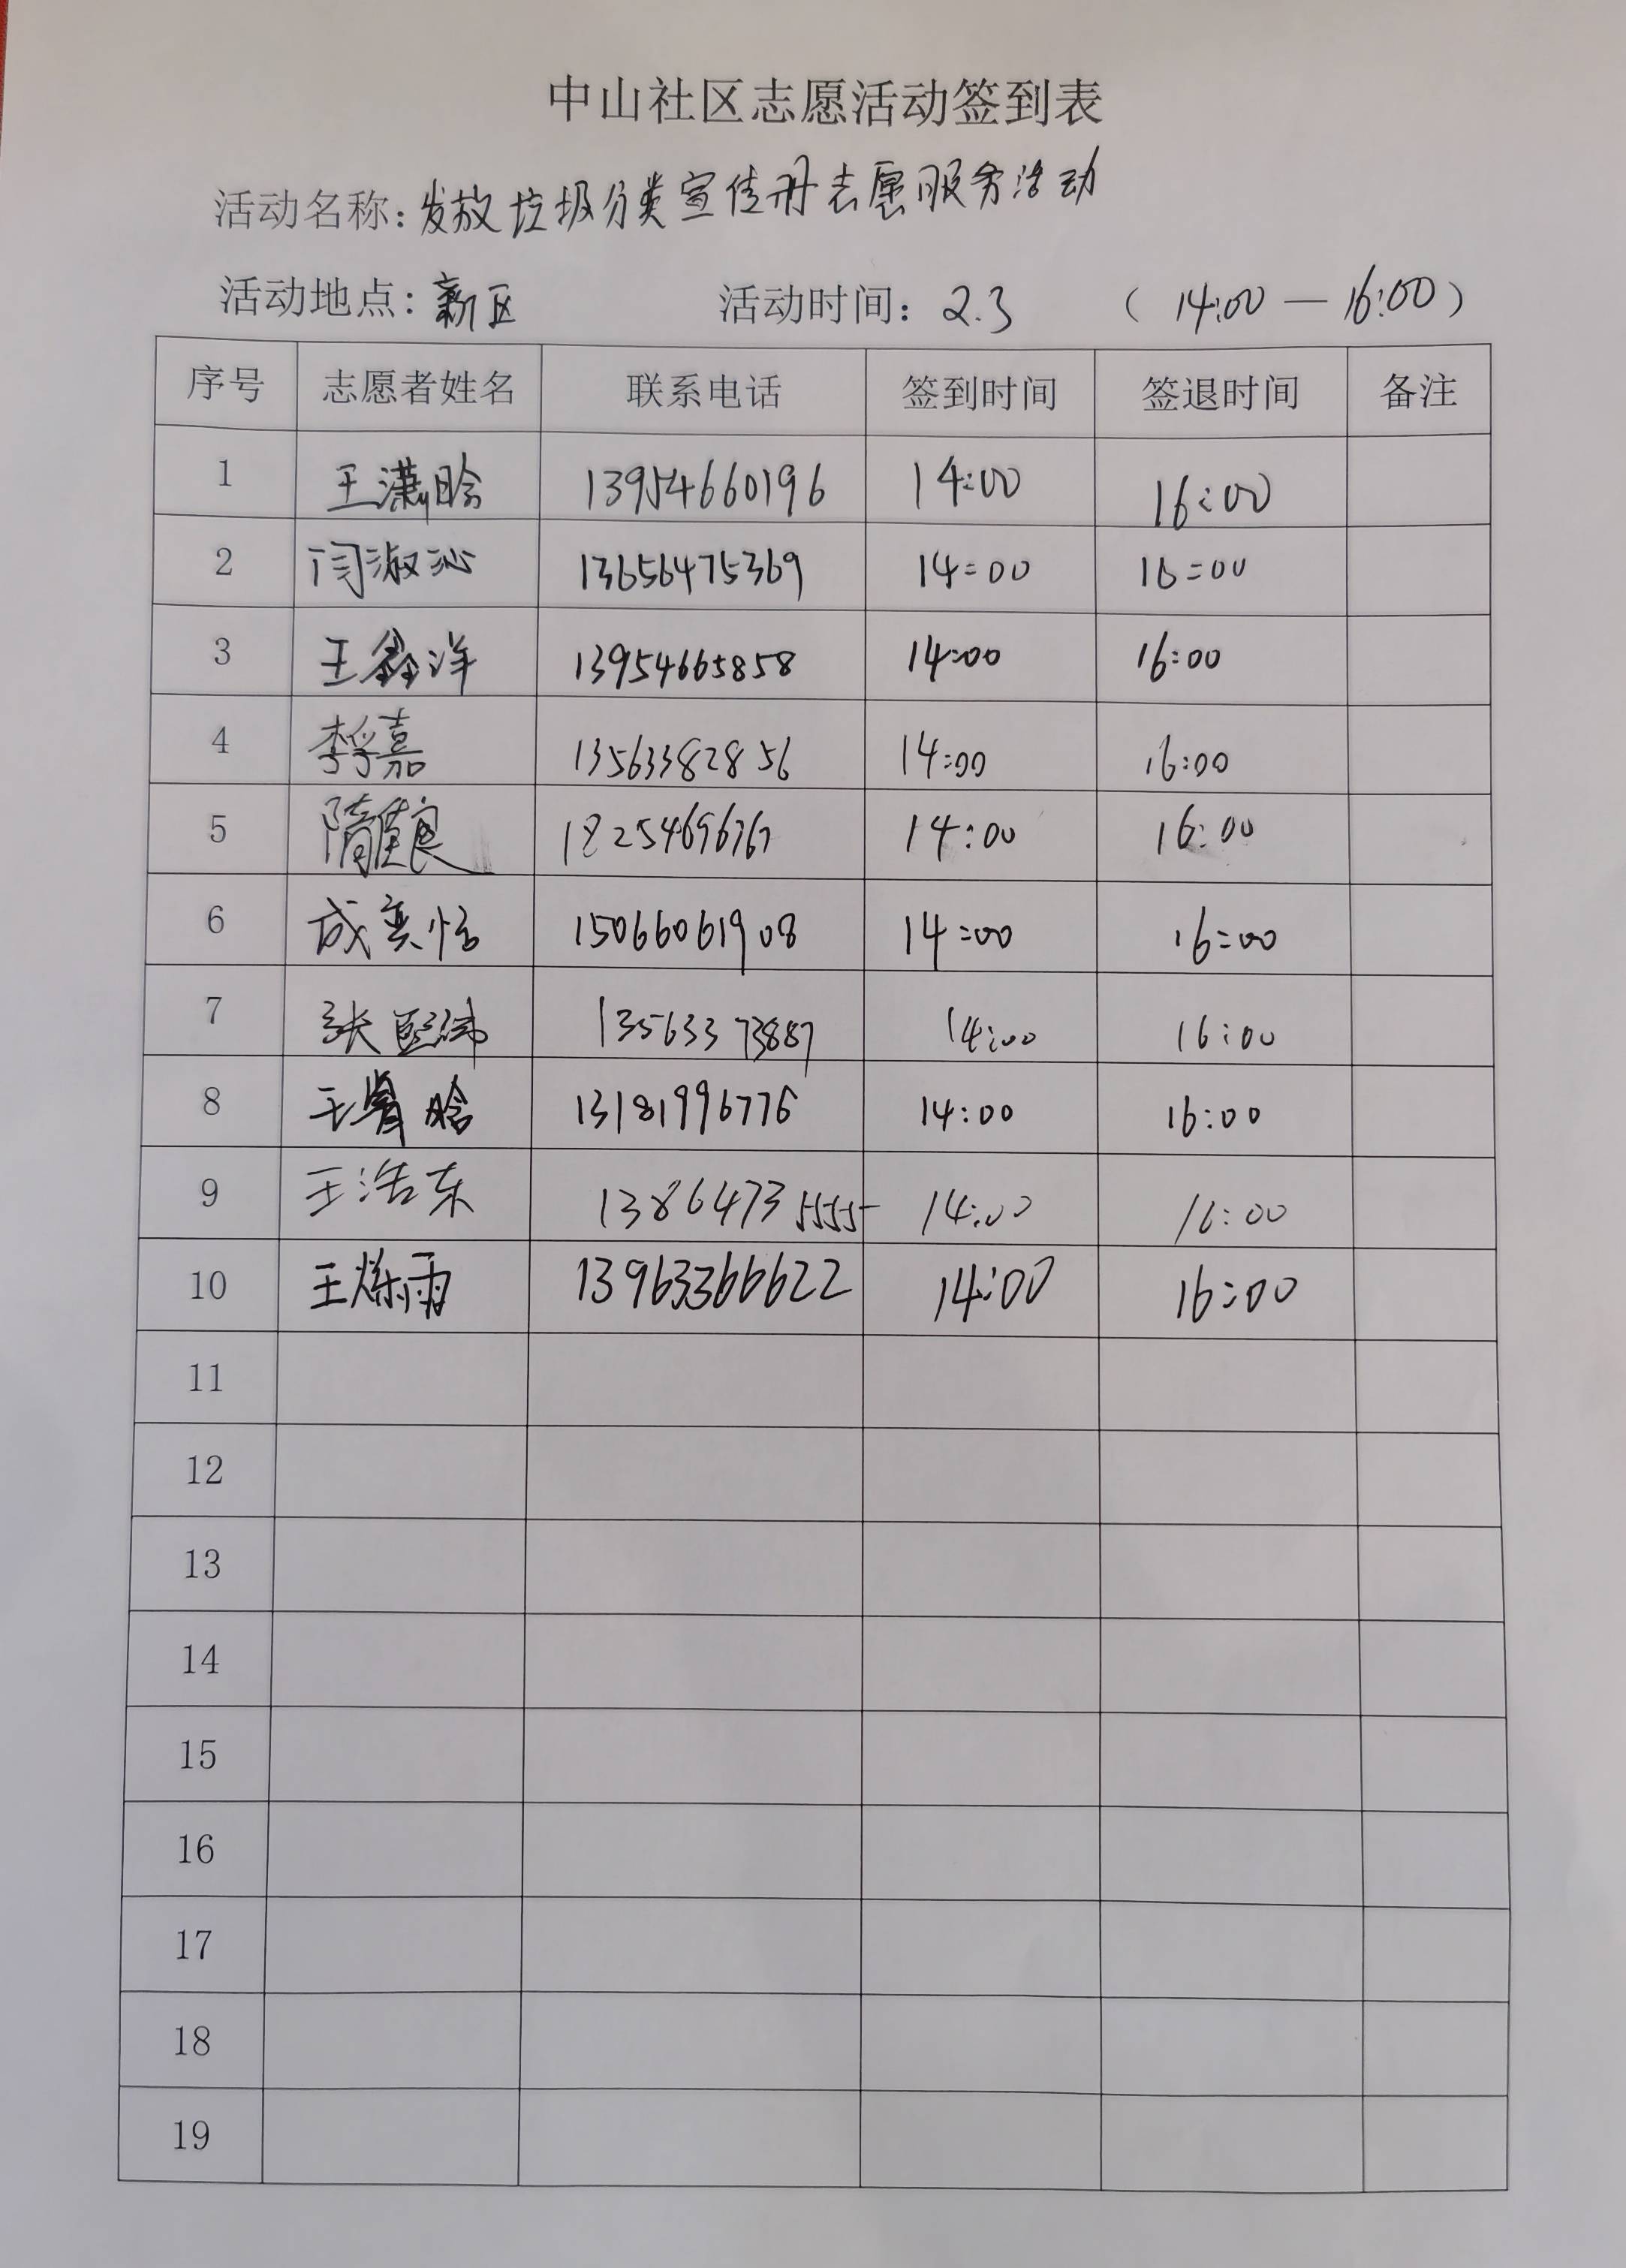 中山社区志愿活动签到表
活动名称:发放垃圾分类宣传册志愿服务活动
活动地点:新区 活动时间:2.3 (14:00—16:00)
序号 志愿者姓名 联系电话 签到时间 签退时间 备注
1 王潇晗 13954660196 14:00 16:00
2 闫淑沁 13656475369 14:00 16:00
3 王鑫洋 13954665858 14:00 16:00
4 李孚嘉 13563382856 14:00 16:00
5 14:00 16:00
6 成奕恒 15066061908 14:00 16:00
7 13563373887 14:00 16:00
8 13181996776 14:00 16:00
9 王浩东 13864735555 14:00 16:00
10 王烁雨 13963366622 14:00 16:00
11
12
13
14
15
16
17
18
19